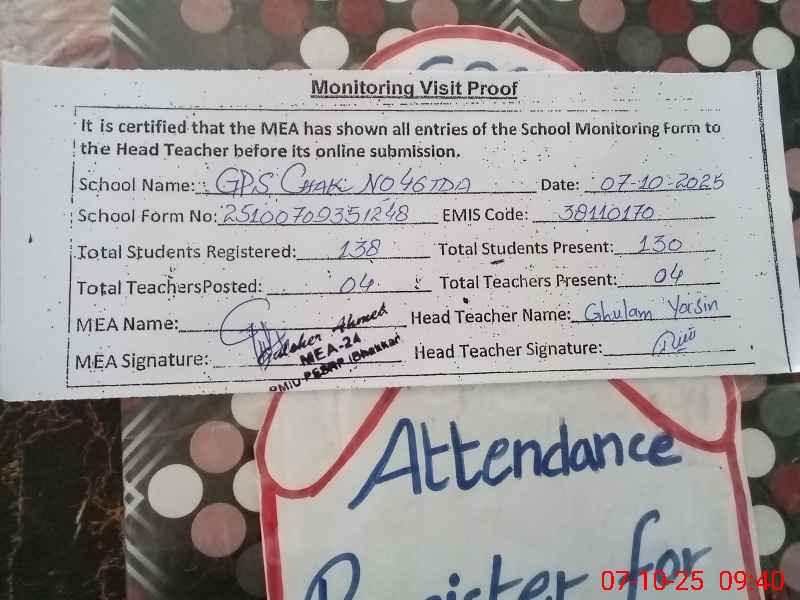 Monitoring Visit Proof
It is certified that the MEA has shown all entries of the School Monitoring Form to
the Head Teacher before its online submission.
School Name: GPS Chak No 46 TDA Date: 07-10-2025
School Form No: 25100709351248 EMIS Code: 38110170
Total Students Registered: 138 Total Students Present: 130
Total TeachersPosted: 04 Total Teachers Present: 04
MEA Name: Head Teacher Name: Ghulam Yasin
MEA Signature: Ahmed Head Teacher Signature:
MEA-24
PMIU-PESRP (Bhakkar)
Attendance
Register for
07-10-25 09:40